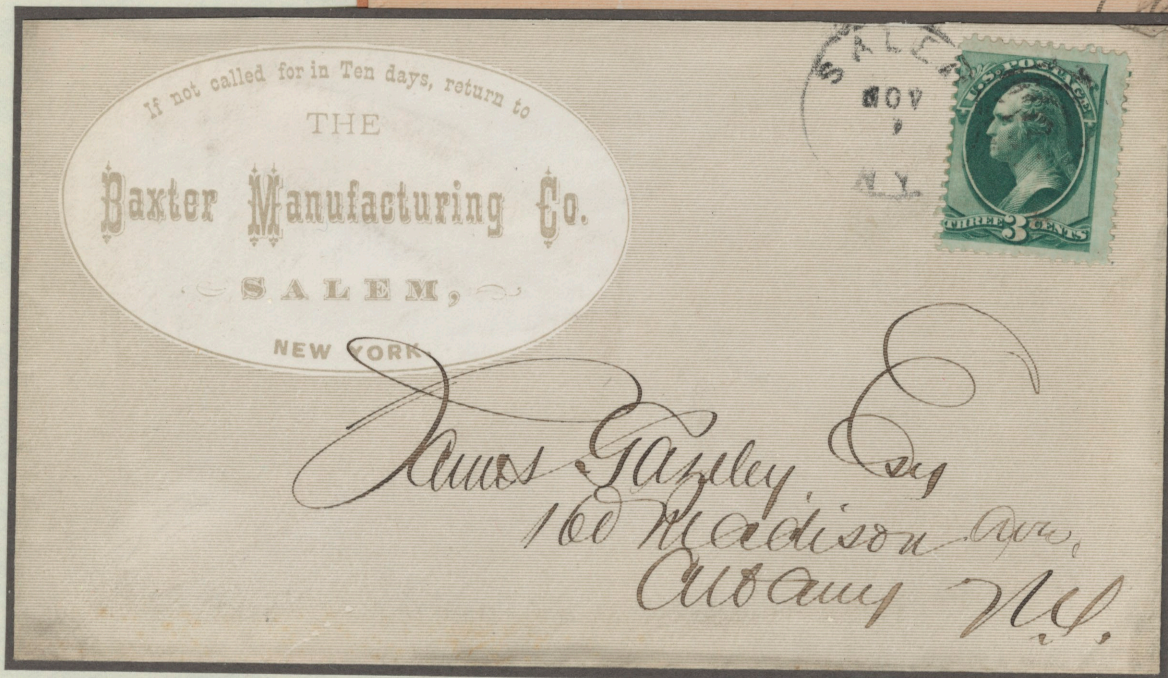 If not called for in Ten days, return to
THE
Baxter Manufacturing Co.
SALEM,
NEW YORK.
SALEM
NOV
N.Y.
U.S. POSTAGE
THREE 3 CENTS
James Gazeley Esq
160 Madison Ave.
Albany N.Y.